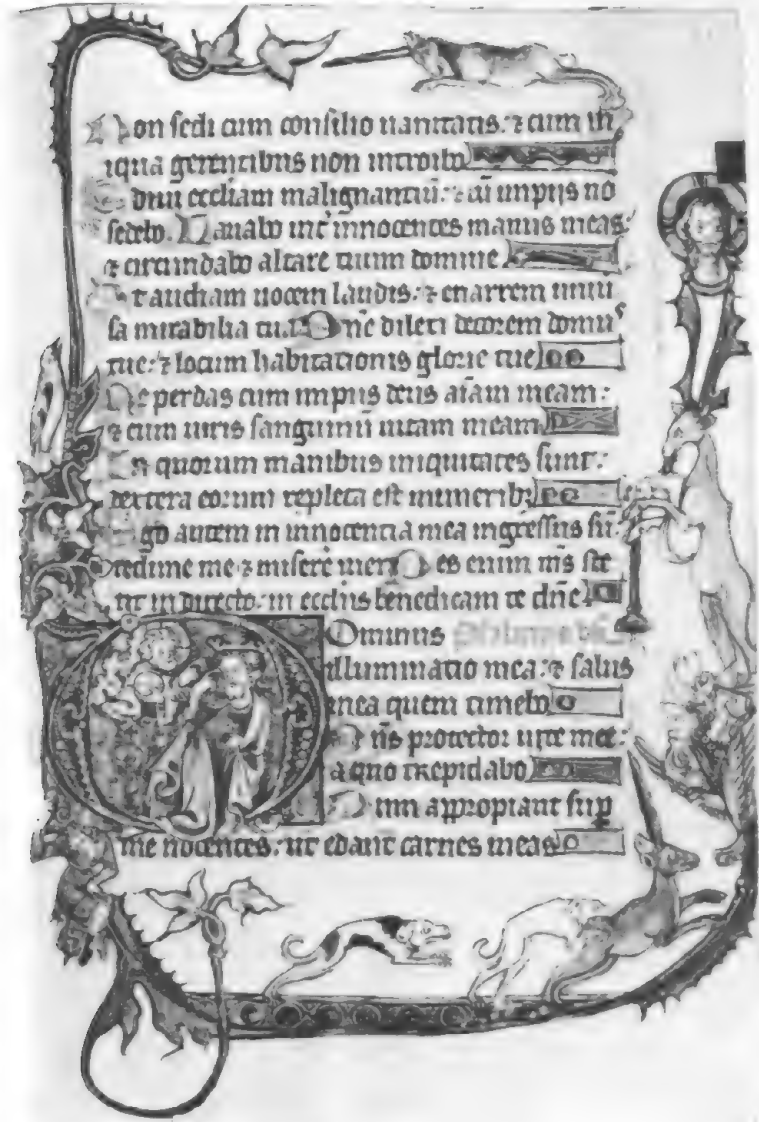 Non sedi cum consilio uanitatis: ⁊ cum in
iqua gerentibus non introibo
Odiui ecc̄liam malignantiū: ⁊ cū impijs nō
sedebo. Lauabo int̄ innocentes manus meas:
⁊ circumdabo altare tuum domine
Ut audiam uocem laudis: ⁊ enarrem uniu
sa mirabilia tua. Dn̄e dilexi decorem domus
tue: ⁊ locum habitationis glorie tue
Ne perdas cum impiis deus aīam meam:
⁊ cum uiris sanguinū uitam meam
In quorum manibus iniquitates sunt:
dextera eorum repleta est munerib
Ego autem in innocentia mea ingressus sū:
redime me ⁊ miserē mei. Pes enim mīs ste
tit in directo: in ecc̄liis benedicam te dn̄e
Dominus
illuminatio mea: ⁊ salus
mea quem timebo
Dn̄s protector uite mee:
a quo trepidabo
Dum appropiant sup
me nocentes: ut edant carnes meas